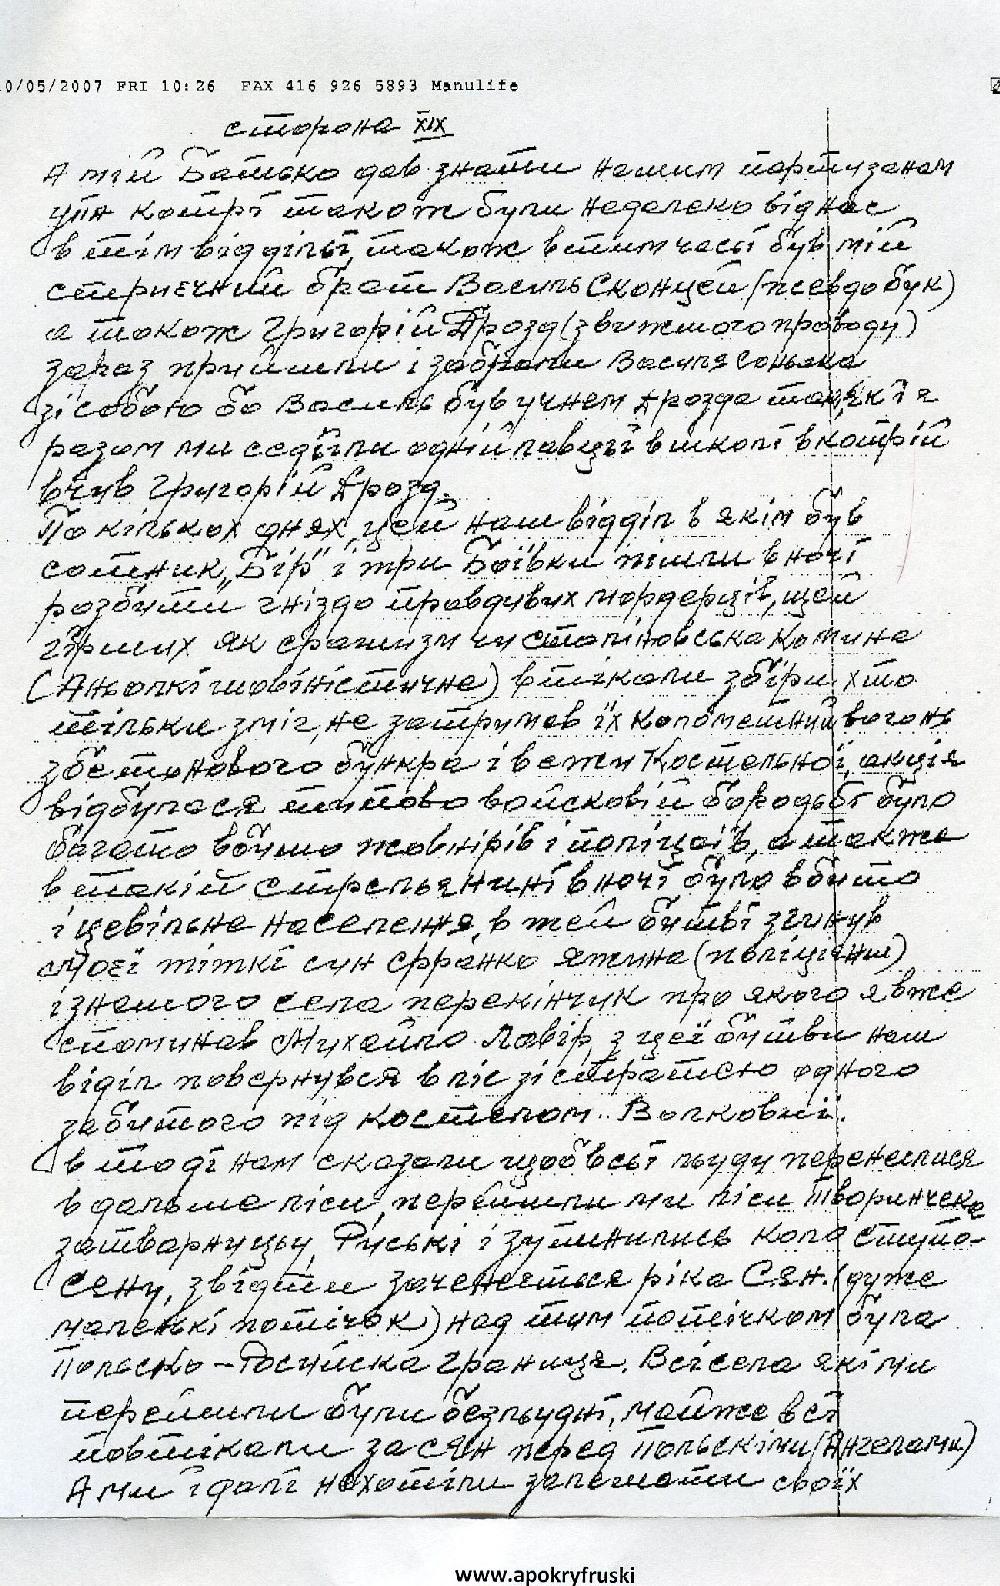 0/05/2007 FRI 10:26 FAX 416 926 5893 Manulife
сторона XIX
А мій Батько дав знати нашим партизанам
упа котрі також були недалеко віднас
в тім відділі, також втим часі був мій
стриєчний брат Василь Сконцей (псевдо бук)
а також Григорій Дрозд (звижшого проводу)
зараз прийшли і забрали Василя
зісобою бо Василь був учнем Дрозда так, як і я
разом ми седіли одній лавці в школі в котрій
вчув Григорій Дрозд.
По кількох днях, цей наш відділ в якім був
сотник, „Бір" і три Боївки пішли вночі
розбити гніздо правдивих мордерців, щей
гірших як фашизм чи сталіновська комуна
(Аньолкі шовіністичне) втікали збіри хто
тільки зміг, не затримав їх кулеметний вогонь
збетонового бункра і вежи Костельної, акція
відбулася типово войсковій бородьбі було
багато вбито жовнірів і поліцаїв, а также
в такій стрельянині вночі було вбито
і цевільне населення, в тей битві згинув
Моєї тіткі син Франко Яшина (поліціянт)
ізнашого села перекінчик про якого я вже
споминав Михайло Лавір, з цеї битви наш
віділ повернувся в ліс зістратою одного
забитого під костелом Волковиї.
в тоді нам сказали щоб всі льуду перенеслися
в дальше ліси, перейшли ми ліси Творинчека
затварницьу, Руські і зупинились коло Ступо-
сяну, звідти заченеться ріка Сян. (дуже
маленькі потічок) над тим потічком була
Польско – Росийска границя. Всі села які ми
перейшли були безльудні, майже всі
повтікали за Сян перед Польскіми (Ангелами)
А ми і далі нехотіли залешати своїх
www.apokryfruski